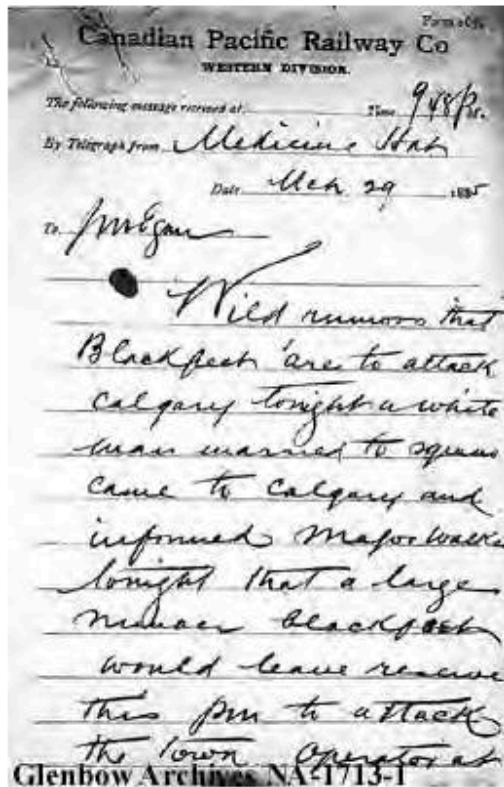 Canadian Pacific Railway Co
WESTERN DIVISION.
The following message received at Time 948 Pm.
By Telegraph from Medicine Hat
Date Mch 29 1885
To JM Egan
Wild rumors that
Blackfeet are to attack
Calgary tonight a white
man married to squaw
came to Calgary and
informed Major Walke
tonight that a large
number blackfeet
would leave reserve
this pm to attack
the town operator at
Glenbow Archives NA-1713-1